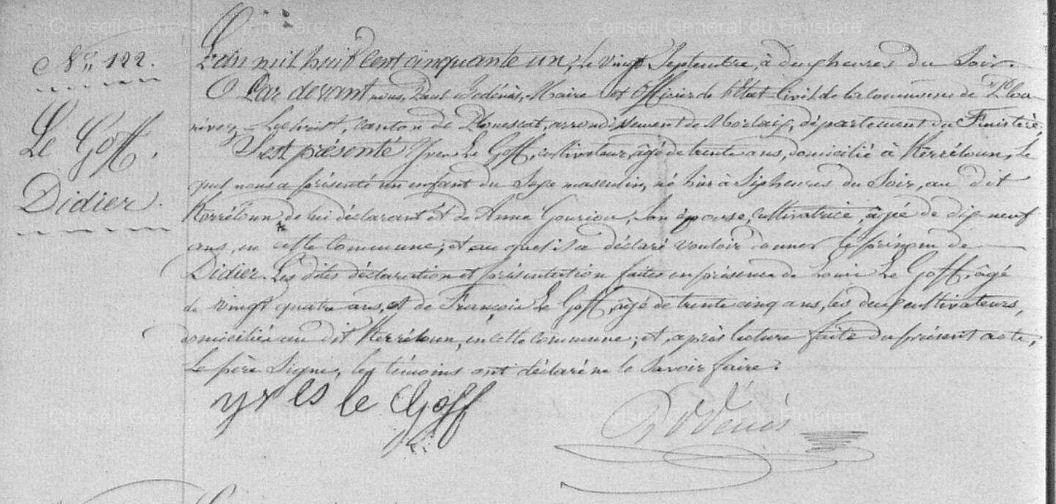 N° 122.
Le Goff,
Didier.
L'an mil huit cent cinquante un, le vingt Septembre, à deux heures du Soir.
Par devant nous, Paul Médénis, Maire et Officier de l'État Civil de la commune de Plou
névez-Lochrist, canton de Plouescat, arrondissement de Morlaix, département du Finistère,
S'est présenté Yves Le Goff, cultivateur, âgé de trente ans, domicilié à Kerrétoun, Le
quel nous a présenté un enfant du Sexe masculin, né hier à Six heures du Soir, au dit
Kerrétoun, de lui déclarant et de Anne Gouriou, Son épouse, Cultivatrice, âgée de dix neuf
ans, en cette Commune; et auquel il a déclaré vouloir donner le prénom de
Didier. Les dites déclaration et présentation faites en présence de Louis Le Goff, âgé
de vingt quatre ans, et de François Le Goff, âgé de trente cinq ans, les deux cultivateurs,
domiciliés au dit Kerrétoun, en cette commune; et, après lecture faite du présent acte,
Le père Signe, les témoins ont déclaré ne le Savoir faire.
yves le Goff
Conseil Général du Finistère
Conseil Général du Finistère
Conseil Général du Finistère
Conseil Général du Finistère